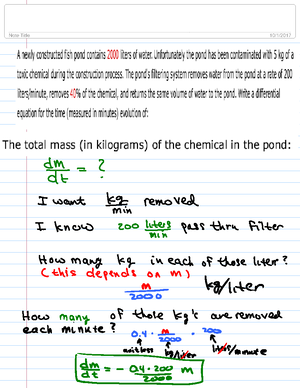 Note Title
10/1/2017
A newly constructed fish pond contains 2000 liters of water. Unfortunately the pond has been contaminated with 5 kg of a
toxic chemical during the construction process. The pond's filtering system removes water from the pond at a rate of 200
liters/minute, removes 40% of the chemical, and returns the same volume of water to the pond. Write a differential
equation for the time (measured in minutes) evolution of:
The total mass (in kilograms) of the chemical in the pond:
dm/dt = ?
I want kg/min removed
I know 200 liters/min pass thru filter
How many kg in each of those liter?
(this depends on m)
m/2000 kg/liter
How many of those kg's are removed
each minute?
0.4 · m/2000 · 200
unitless kg/liter liter/minute
dm/dt = - 0.4·200/2000 m